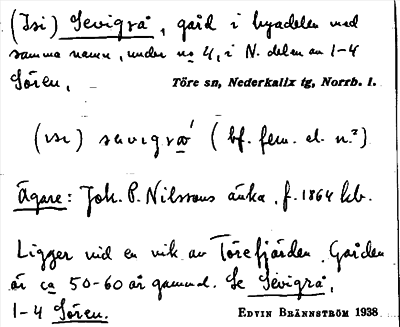 (Isi) Sevigrå, gård i byadelen med
samma namn, under no 4, i N. delen av 1-4
Sören,
Töre sn, Nederkalix tg, Norrb. l.
(ısı) sævıgra̱' (bf. fem. el. n.?)
Ägare: Joh. P. Nilssons änka, f. 1864 kb.
Ligger vid en vik av Törefjärden. Gården
är ca 50-60 år gammal. Se Sevigrå,
1-4 Sören.
EDVIN BRÄNNSTRÖM 1938